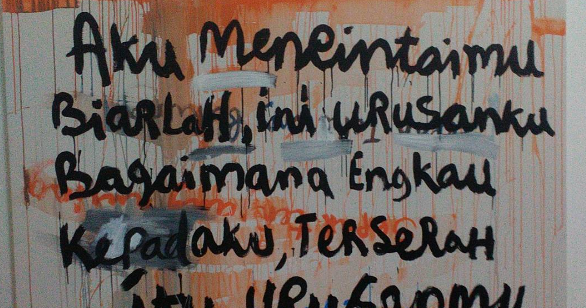 Aku Mencintaimu
Biarlah, ini urusanku
Bagaimana Engkau
Kepadaku, Terserah
itu urusanmu